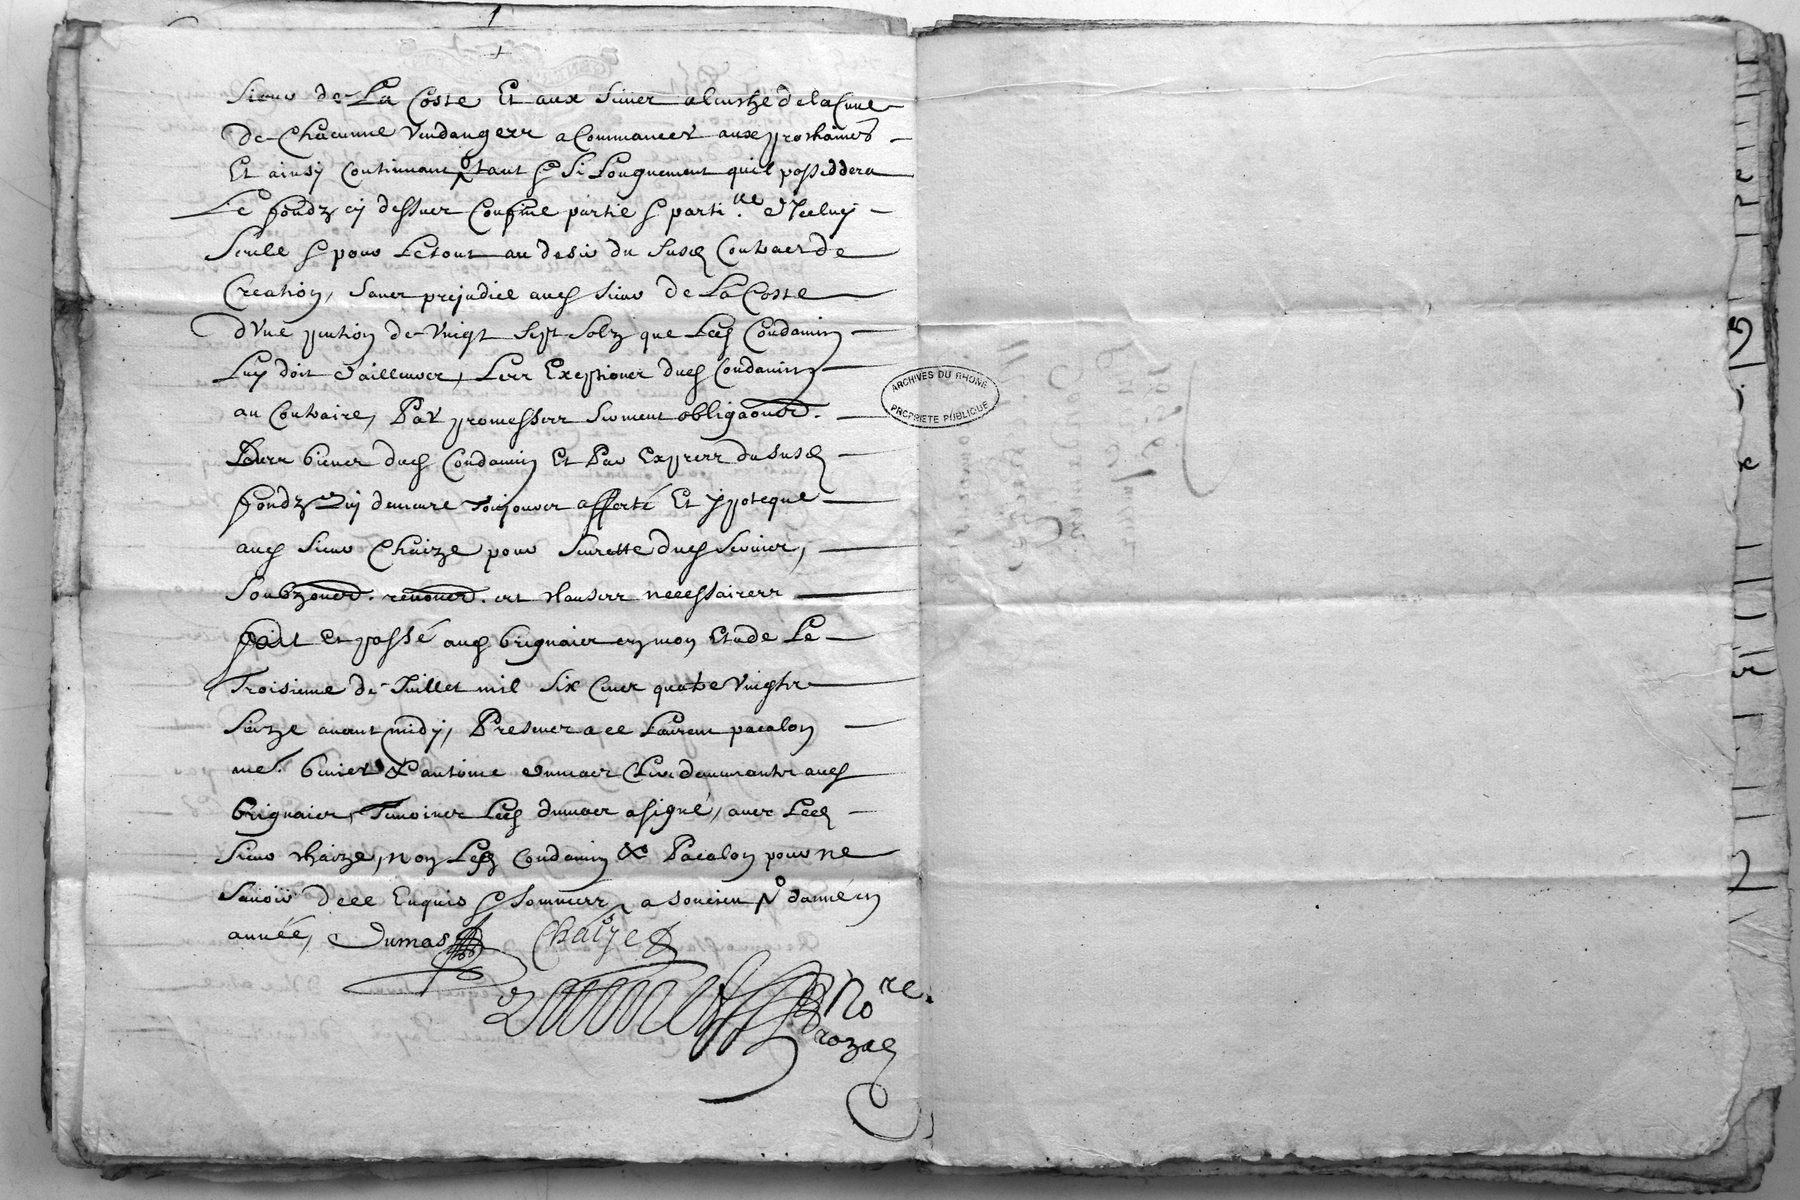 Sieur de La Coste Et aux siens a la cuve
de Chacunne Vendanges a Commancer aux prochaines
Et ainsy Continuant tant & si Longuement qu'il possiddera
Le fondz cy dessus Confiné partie & parti.lle d'Icelluy
Seulle & pour Le tout au desir du susd Contract de
Creation, sans prejudice aud sieur de La Coste
d'Vne pention de Vingt sept solz que Led Condamin
Luy doit d'ailleurs, Les Exeptions dud Condamin
au Contraire, Par promesses serment obliga.ons
des biens dud Condamin Et Par Expres du susd
fondz qui demeure tousjours affecté Et ypoteque
aud sieur Chaize pour seurette dud servis,
Soubz.ons renon.ons et clauses necessaires
fait et passé aud brignais en mon Etude Le
Troisieme de Juillet mil six Cens quatre Vingts
seize avant midy, Presens a ce Laurent pacalon
& antoine dumas demeurants aud
brignais, Temoins Led dumas a signé, avec Led
sieur chaize, non Led Condamin & Pacalon pour ne
sçavoir de ce Enquis & sommes
année, Dumas Chaize
No.re
Rozal
ARCHIVES DU RHONE
PROPRIETE PUBLIQUE